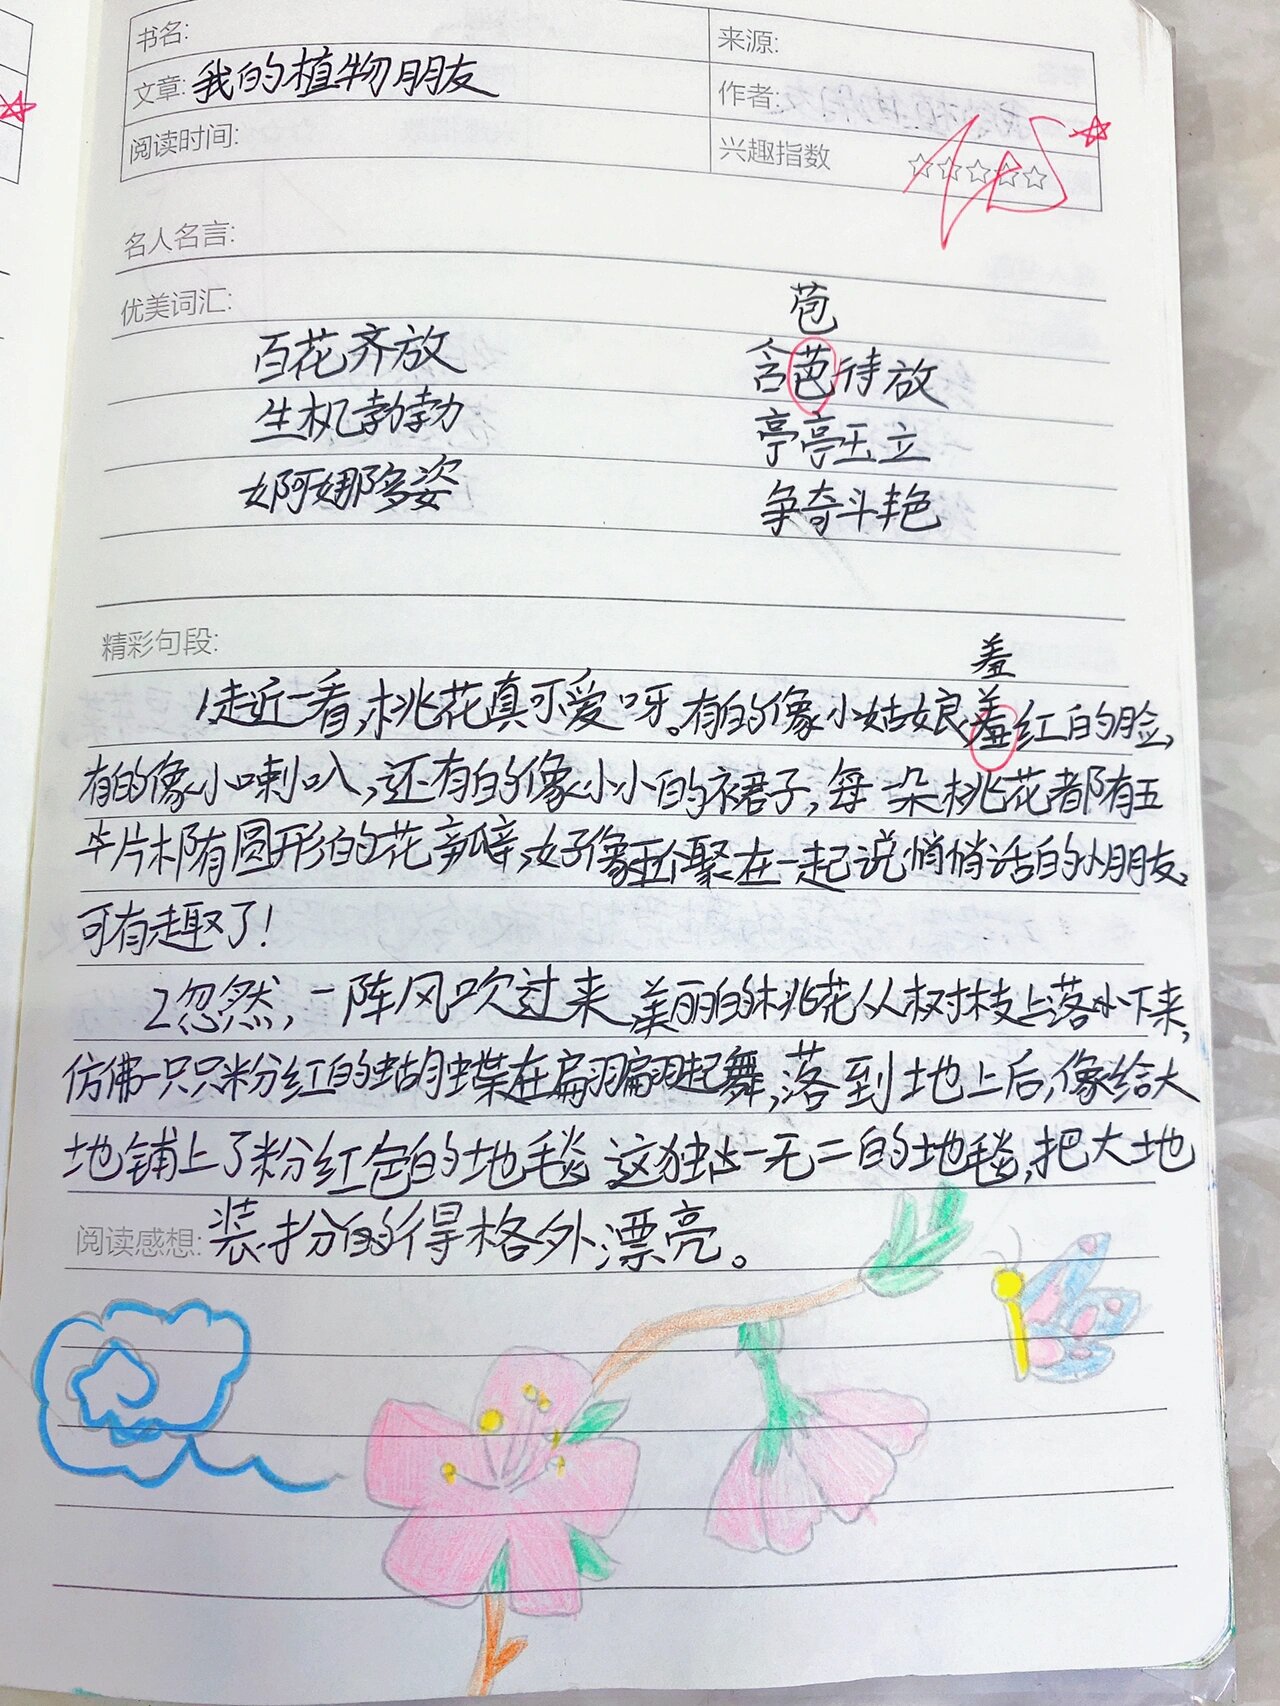 书名:
来源:
文章: 我的植物朋友
作者:
阅读时间:
兴趣指数 ☆☆☆☆☆
名人名言:
优美词汇:
苞
百花齐放 含芭待放
生机勃勃 亭亭玉立
婀娜多姿 争奇斗艳
精彩句段:
羞
1走近一看,桃花真可爱呀。有的像小姑娘羞红的脸,
有的像小喇叭,还有的像小小的裙子,每朵桃花都有五
片椭圆形的花瓣,好像五个聚在一起说悄悄话的小朋友,
可有趣了!
2忽然,一阵风吹过来 美丽的桃花从树枝上落下来,
仿佛一只只粉红的蝴蝶在扁翩翩起舞,落到地上后,像给大
地铺上了粉红色的地毯 这独一无二的地毯,把大地
阅读感想: 装扮的得格外漂亮。